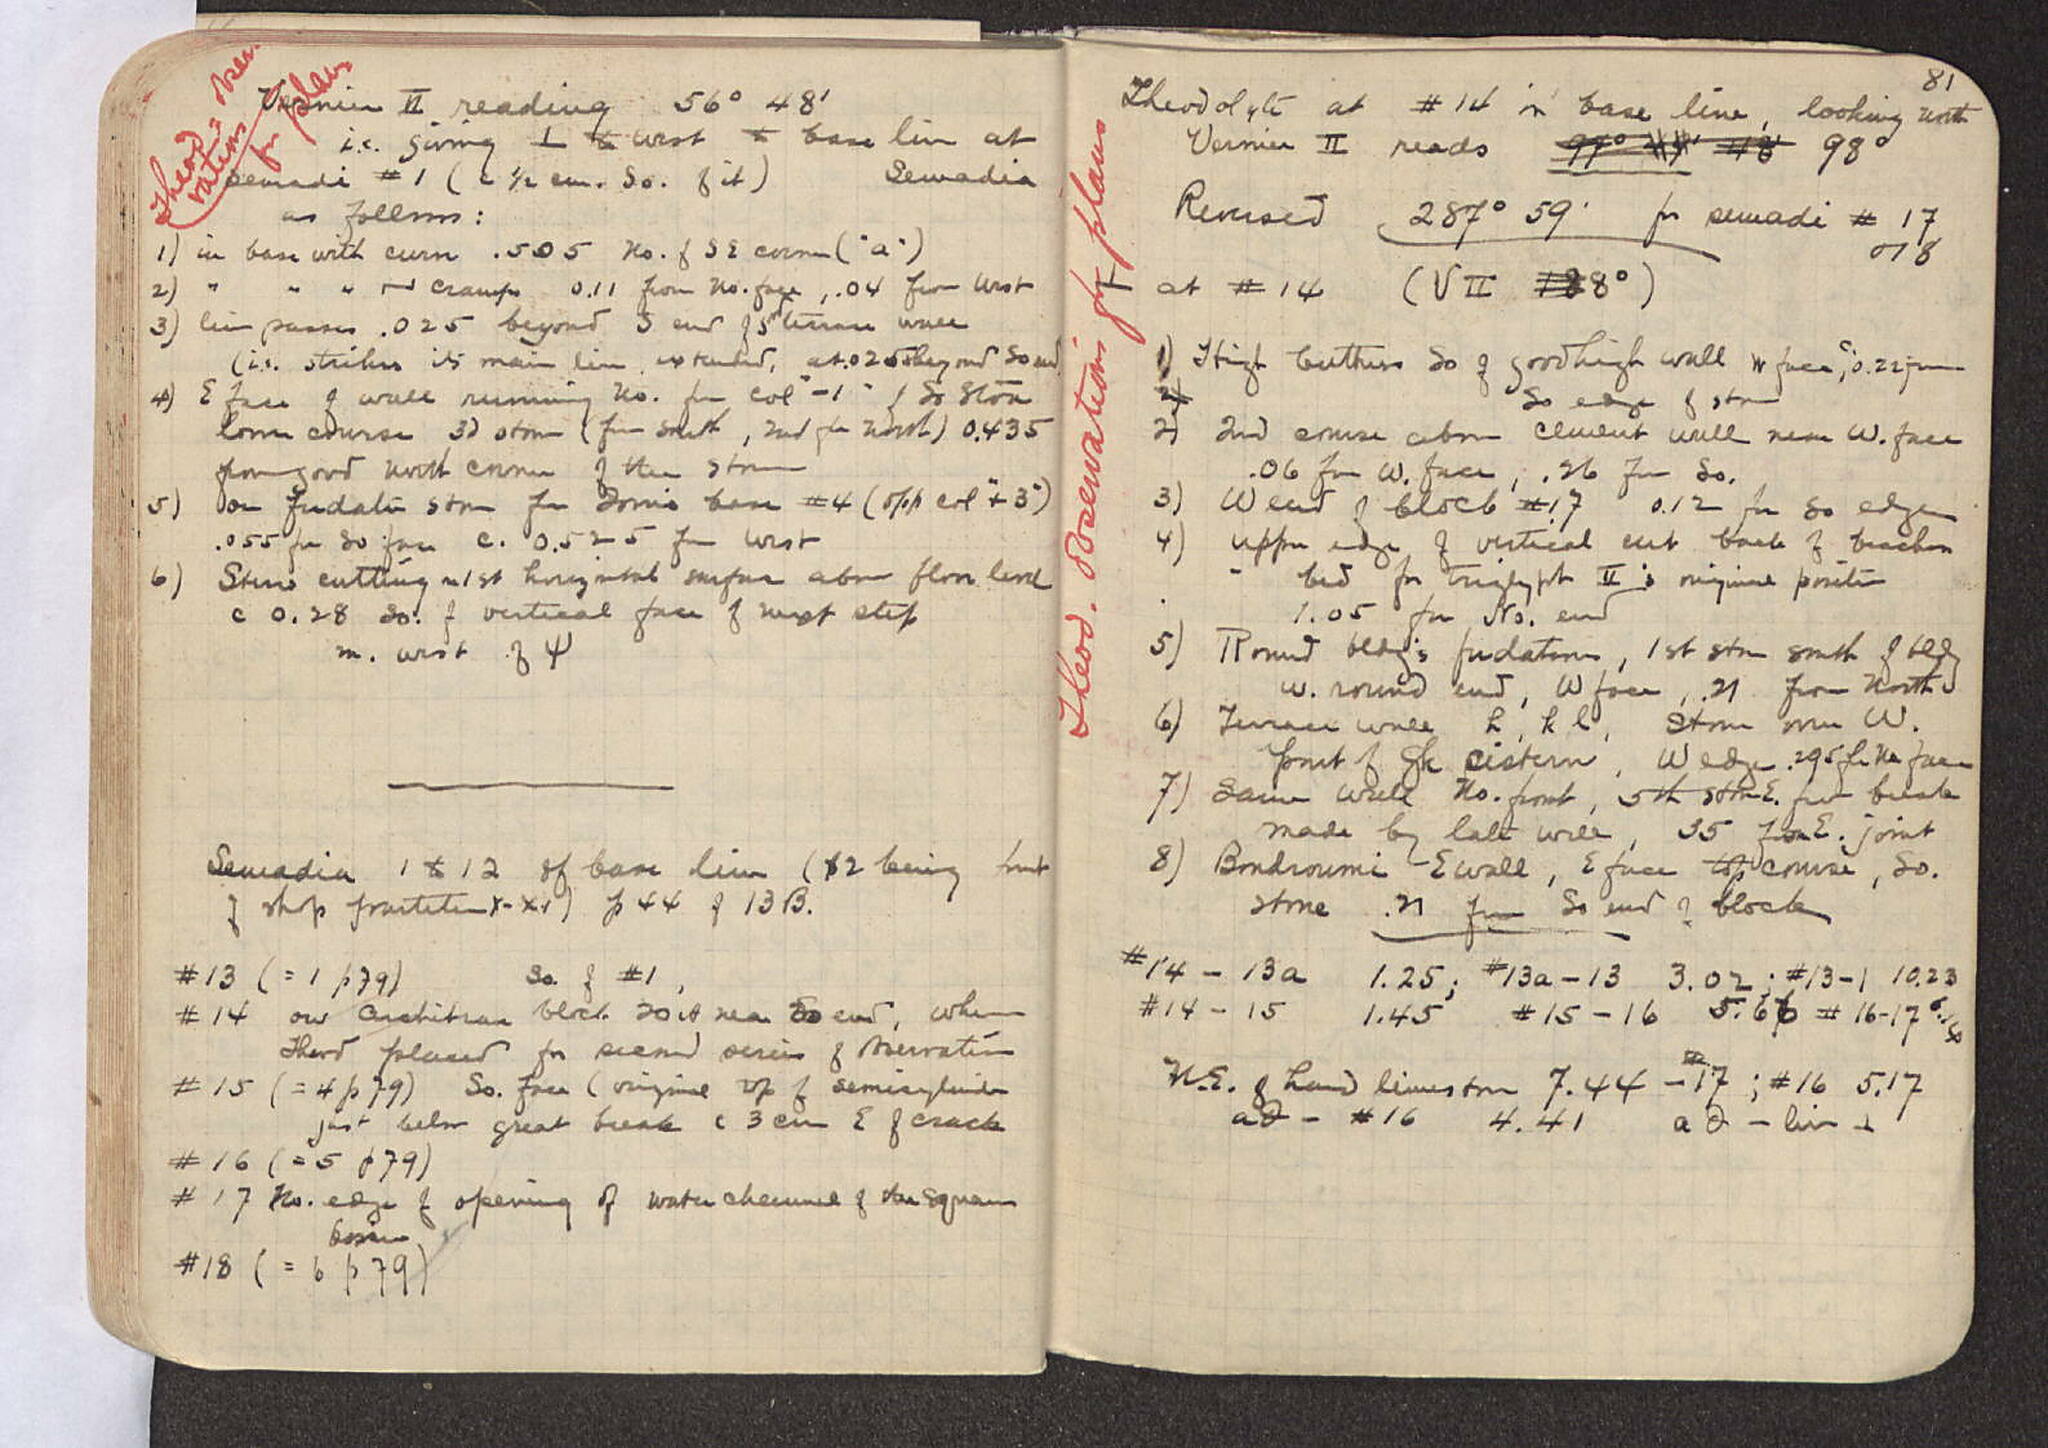 Theod. Obser-
vations for plans
Vernier II reading 56° 48'
i.e. giving ⊥ to west to base line at
semadi #1 (c ½ cm. So. of it) Semadia
as follows:
1) in base with curve .505 No. of SE corner ("a")
2) " " " cramps 0.11 from No. face, .04 from West
3) line passes .025 beyond S end of S terrace wall
(i.e. strikes its main line extended, at .025 beyond So end
4) E face of wall running No. from col "-1" of So Stoa
lower course 3d stone (from south, 2nd from north) 0.435
from good north corner of the stone
5) on fndatn stone for Ionic base #4 (opp col "+3")
.055 from So face c. 0.525 from West
6) Steno cutting 1st horizontal surface above floor level
c 0.28 So. of vertical face of next step
m. west of ψ
Semadia 1 to 12 of base line (12 being front
of shop p 44 of 13B.
#13 (= 1 p 79) So. of #1,
#14 on Architrave block near So end, where
Theod placed for second series of observation
#15 (= 4 p 79) So. face (original top of semicylinder
just below great break c 3 cm E of crack
#16 (= 5 p 79)
#17 No. edge of opening of water channel of the square
basin
#18 (= 6 p 79)
81
Theod. Observations for plans
Theodolyte at #14 in base line, looking north
Vernier II reads 98°
Reversed 287° 59' for semadi # 17
or 18
⊥ at #14 (V II 8°)
1) High buttress So of good high wall W face, 0.22 from
So edge of stone
2) 2nd course above cement wall near W. face
.06 from W. face, .26 from So.
3) W end of block #17 0.12 from So edge
4) upper edge of vertical cut back of
bed for triglyph II's original position
1.05 from No. end
5) Round bldg's fndations, 1st stone south of bldg
w. round end, W face, .21 from North
6) Terrace wall h, k l, stone over W.
part of Gk cistern, W edge .295 from No face
7) Same wall No. front, 5th stone E. from break
made by late wall, 35 from E. joint
8) Bondroumi E wall, E face top course, So.
stone .21 from So end of block
#14 - 13a 1.25; #13a - 13 3.02; #13-1 10.23
#14 - 15 1.45 #15 - 16 5.66 #16-17
N.E. of hard limestone 7.44 - #17; #16 5.17
ad - #16 4.41 ad - line ⊥